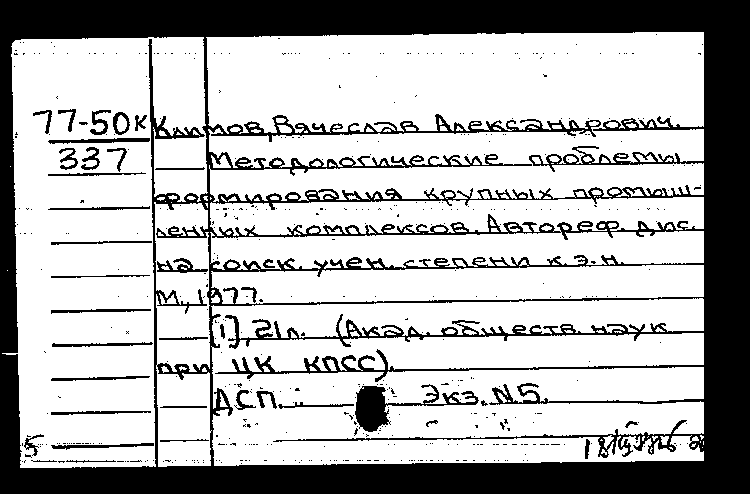 77-50к Климов, Вячеслав Александрович.
337 Методологические проблемы
формирования крупных промыш-
ленных комплексов. Автореф. дис.
на соиск. учен. степени к.э.н.
М., 1977.
[1], 21л. (Акад. обществ. наук
при ЦК КПСС).
ДСП. Экз. N5.
5